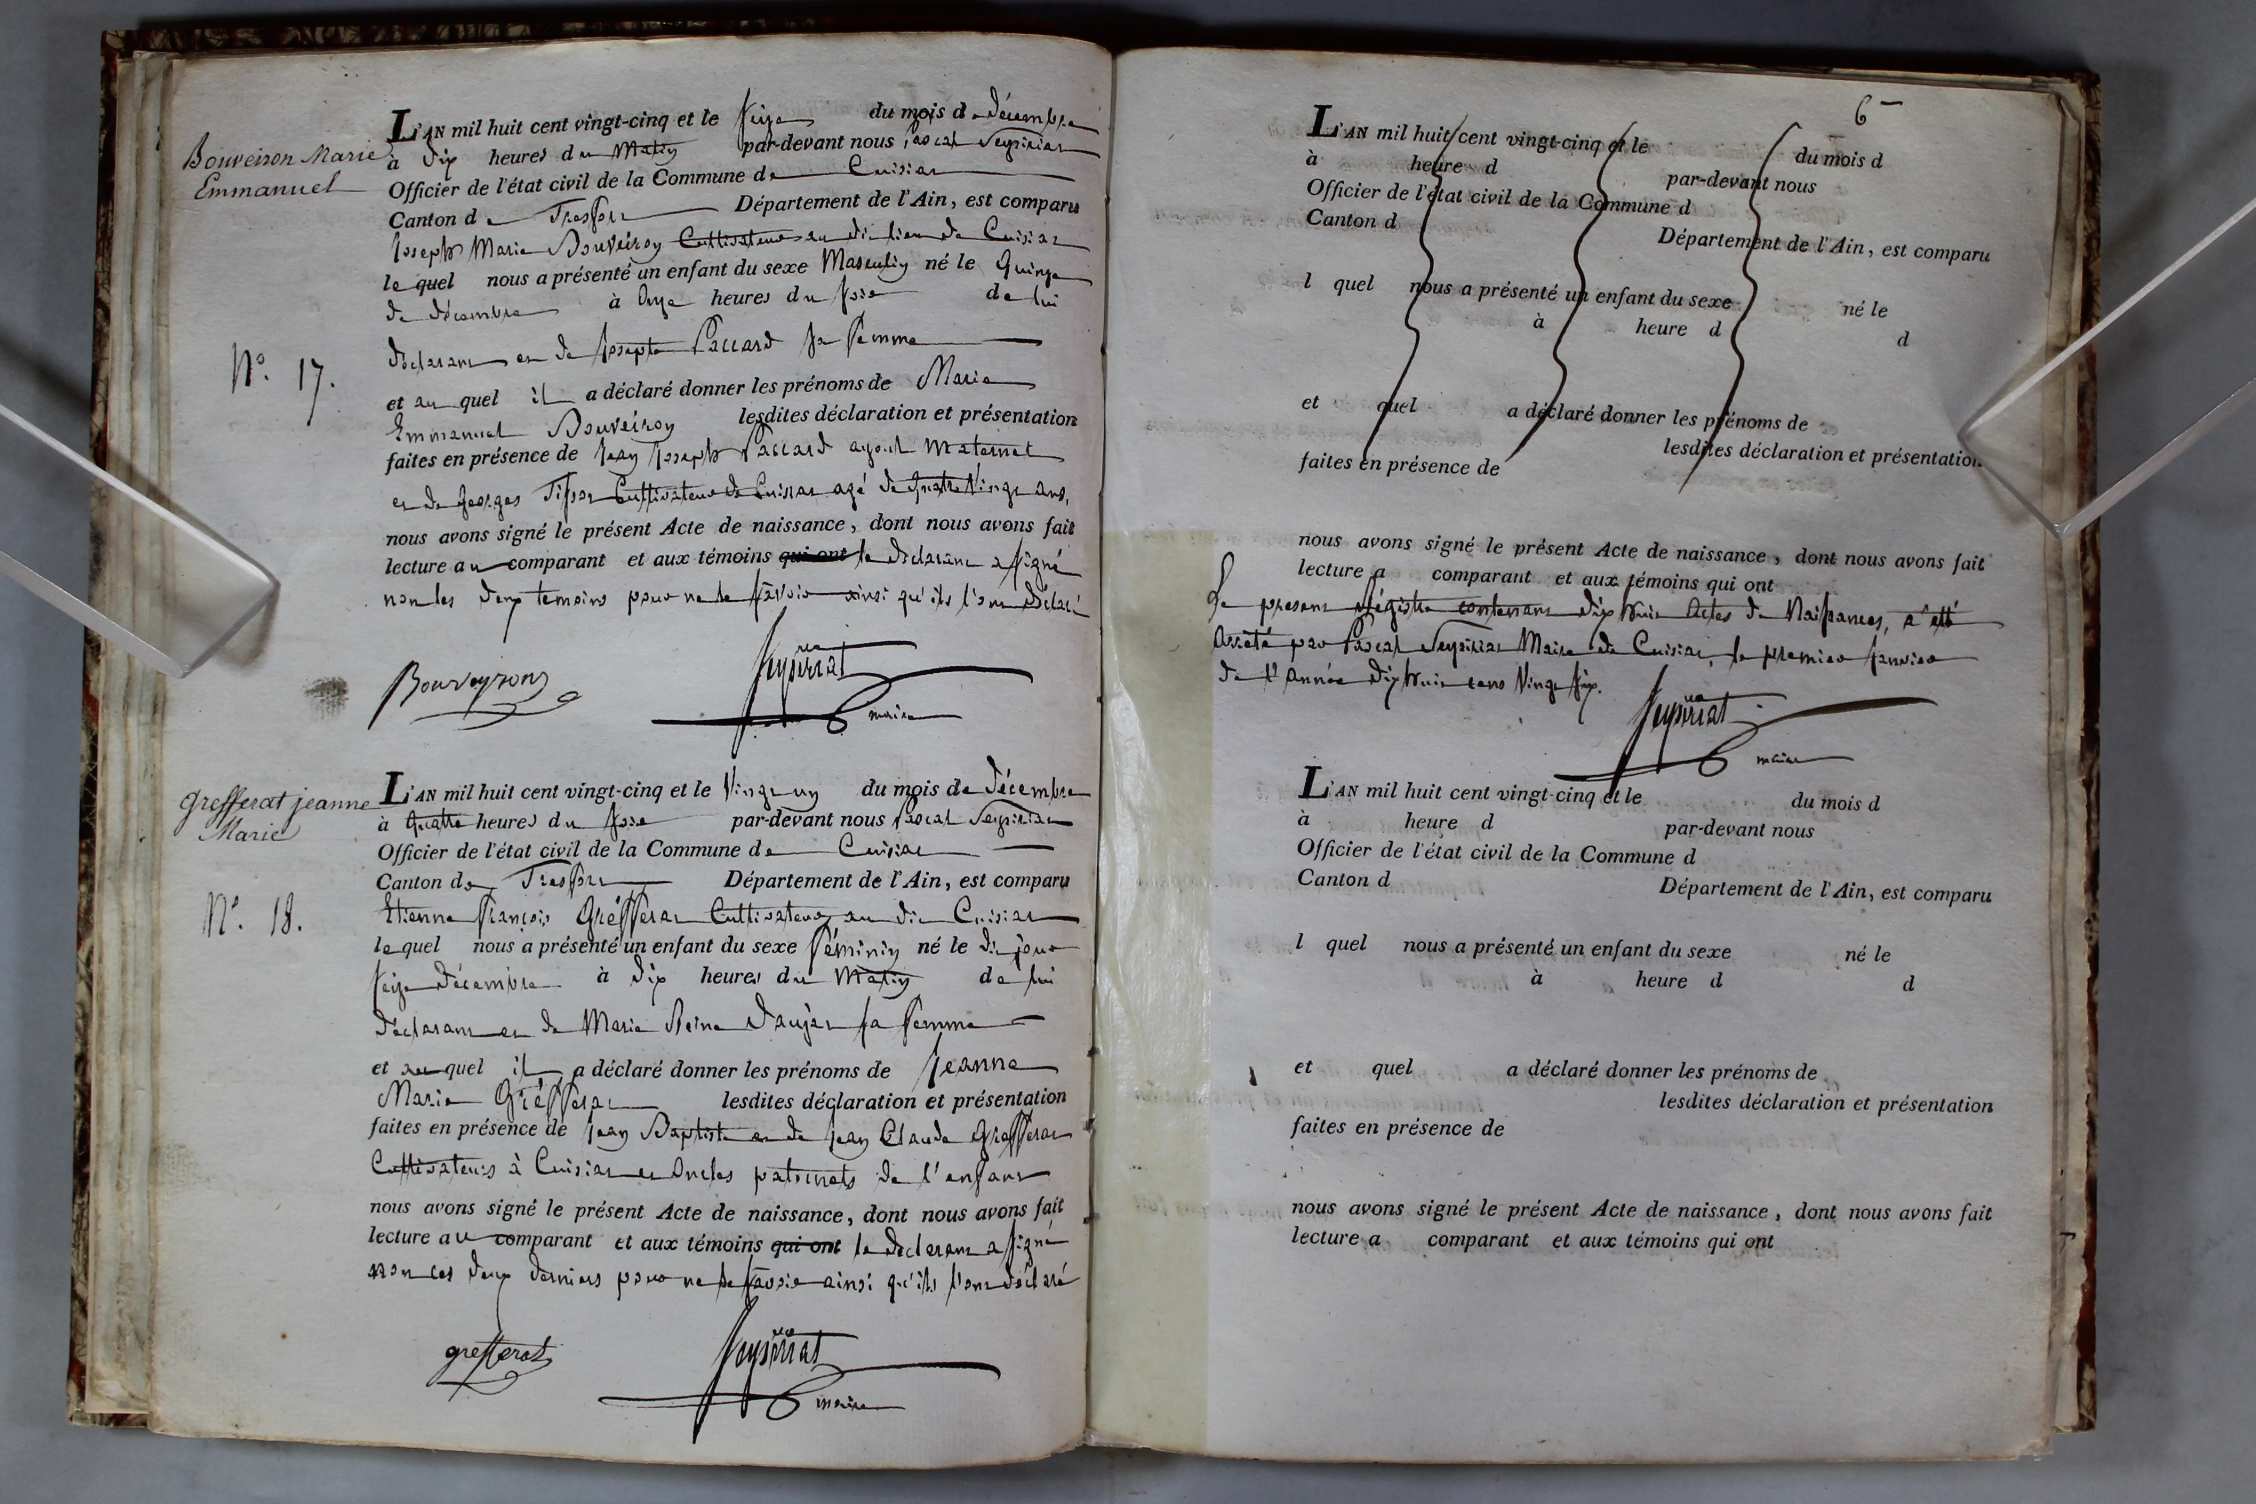 Bouveiron Marie
Emmanuel
N°. 17.
L'AN mil huit cent vingt-cinq et le seize du mois de décembre
à dix heures du matin par-devant nous Pascal Seyssiriat
Officier de l'état civil de la Commune de Cuisiat
Canton de Treffort Département de l'Ain, est comparu
Joseph Marie Bouveiron Cultivateur au dit lieu de Cuisiat
le quel nous a présenté un enfant du sexe Masculin né le Quinze
de décembre à onze heures du soir de lui
déclarant et de Josepte Paccard sa femme
et au quel il a déclaré donner les prénoms de Marie
Emmanuel Bouveiron lesdites déclaration et présentation
faites en présence de Jean Joseph Paccard ayeul Maternel
et de Georges Cultivateur de Cuisiat agé de Quatre Vingt ans,
nous avons signé le présent Acte de naissance, dont nous avons fait
lecture au comparant et aux témoins qui ont le déclarant a signé
non les deux temoins pour ne le savoir ainsi qu'ils l'ont déclaré
Bouveyron
maire
Grefferat jeanne
Marie
N°. 18.
L'AN mil huit cent vingt-cinq et le Vingt un du mois de décembre
à Quatre heures du soir par-devant nous Pascal
Officier de l'état civil de la Commune de Cuisiat
Canton de Treffort Département de l'Ain, est comparu
Etienne françois Grefferat Cultivateur au dit Cuisiat
le quel nous a présenté un enfant du sexe féminin né le dit jour
seize décembre à dix heures du Matin de lui
déclarant et de Marie Reine Daujat sa femme
et au quel il a déclaré donner les prénoms de Jeanne
Marie Grefferat lesdites déclaration et présentation
faites en présence de Jean Baptiste et de Jean Claude Grefferat
Cultivateurs à Cuisiat et oncles paternels de l'enfant
nous avons signé le présent Acte de naissance, dont nous avons fait
lecture au comparant et aux témoins qui ont le déclarant a signé
non les deux derniers pour ne le savoir ainsi qu'ils l'ont déclaré
grefferat
maire
6
L'AN mil huit cent vingt-cinq et le du mois d
à heure d par-devant nous
Officier de l'état civil de la Commune d
Canton d Département de l'Ain, est comparu
l quel nous a présenté un enfant du sexe né le
à heure d d
et quel a déclaré donner les prénoms de
lesdites déclaration et présentation
faites en présence de
nous avons signé le présent Acte de naissance, dont nous avons fait
lecture a comparant et aux témoins qui ont
Le present Régistre contenant dix huit Actes de Naissances, a été
Arreté par Pascal Maire de Cuisiat, le premier Janvier
de l'année dix huit cent Vingt six.
maire
L'AN mil huit cent vingt-cinq et le du mois d
à heure d par-devant nous
Officier de l'état civil de la Commune d
Canton d Département de l'Ain, est comparu
l quel nous a présenté un enfant du sexe né le
à heure d d
et quel a déclaré donner les prénoms de
lesdites déclaration et présentation
faites en présence de
nous avons signé le présent Acte de naissance, dont nous avons fait
lecture a comparant et aux témoins qui ont